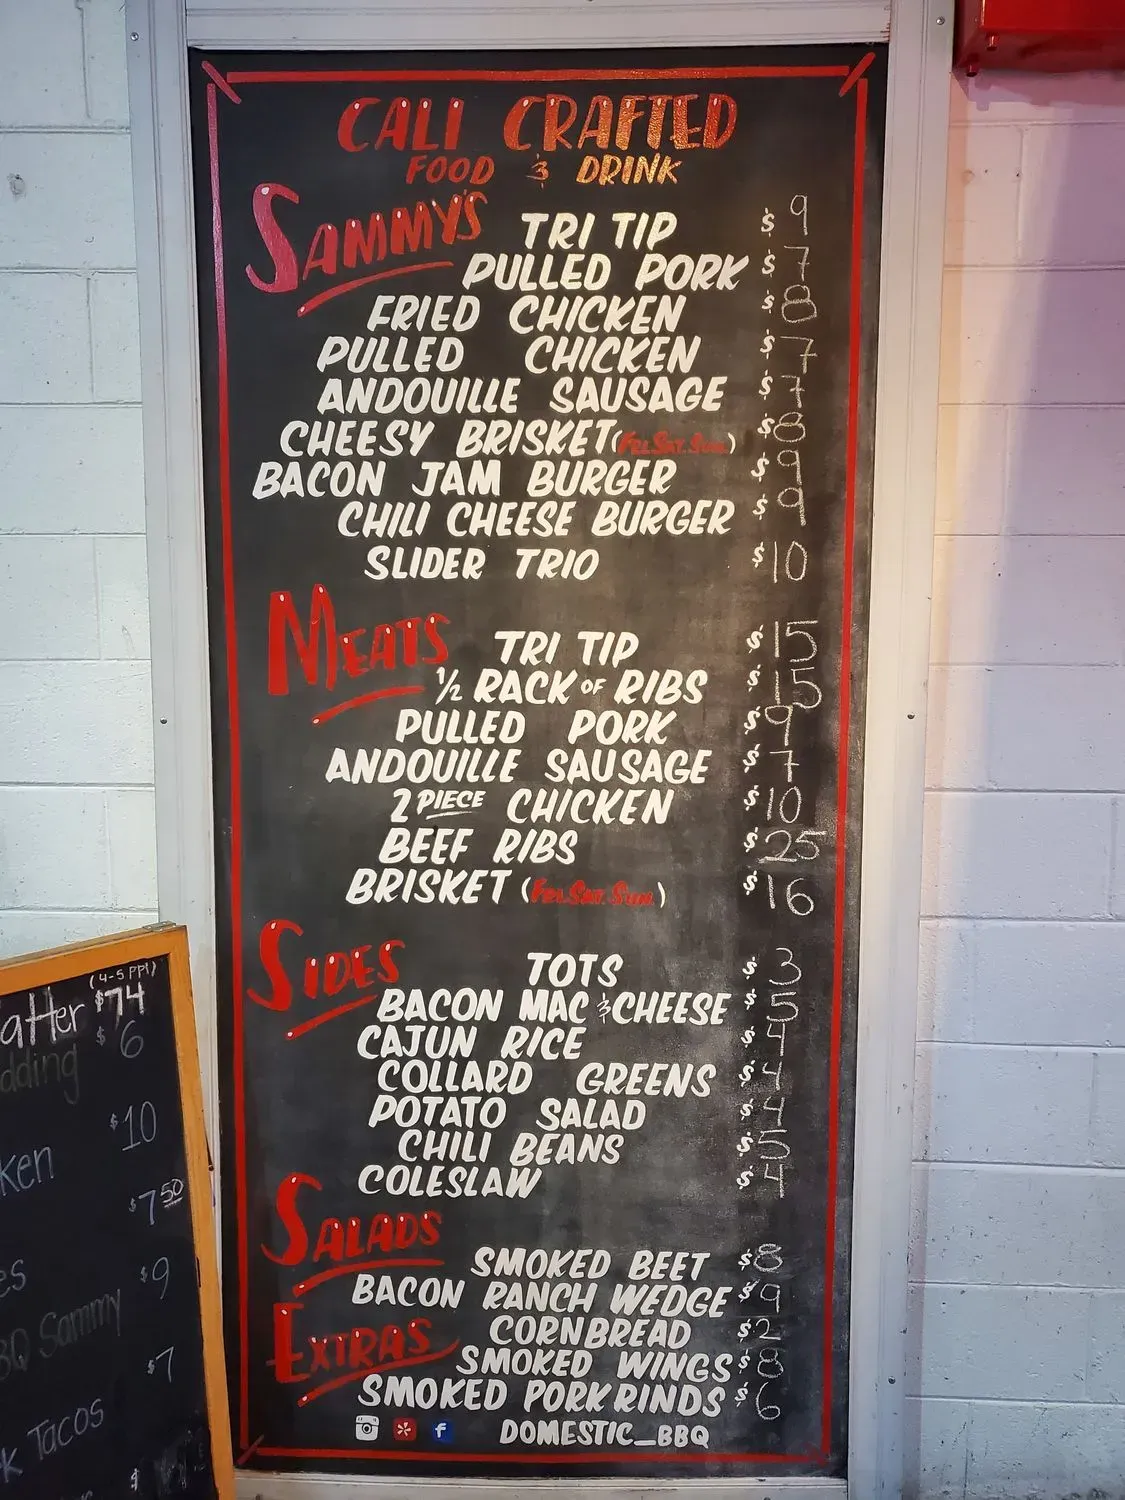 CALI CRAFTED
FOOD & DRINK
SAMMY'S
TRI TIP $ 9
PULLED PORK $ 7
FRIED CHICKEN $ 8
PULLED CHICKEN $ 7
ANDOUILLE SAUSAGE $ 7
CHEESY BRISKET (FRI. SAT. SUN.) $ 8
BACON JAM BURGER $ 9
CHILI CHEESE BURGER $ 9
SLIDER TRIO $ 10
MEATS
TRI TIP $ 15
½ RACK OF RIBS $ 15
PULLED PORK $ 9
ANDOUILLE SAUSAGE $ 7
2 PIECE CHICKEN $ 10
BEEF RIBS $ 25
BRISKET (FRI. SAT. SUN.) $ 16
SIDES
TOTS $ 3
BACON MAC & CHEESE $ 5
CAJUN RICE $ 4
COLLARD GREENS $ 4
POTATO SALAD $ 4
CHILI BEANS $ 5
COLESLAW $ 4
SALADS
SMOKED BEET $ 8
BACON RANCH WEDGE $ 9
EXTRAS
CORNBREAD $ 2
SMOKED WINGS $ 8
SMOKED PORK RINDS $ 6
DOMESTIC_BBQ
(4-5 PPl)
atter $74
dding $6
$10
ken
$7 50
es $9
BQ Sammy
$7
k Tacos
$